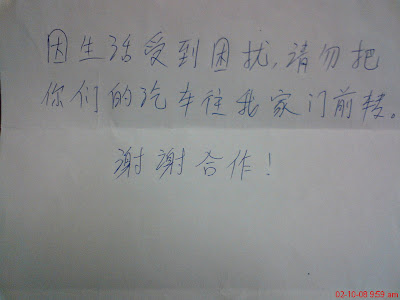 因生活受到困扰,请勿把
你们的汽车往我家门前。
谢谢合作!
02-10-08 9:59 am